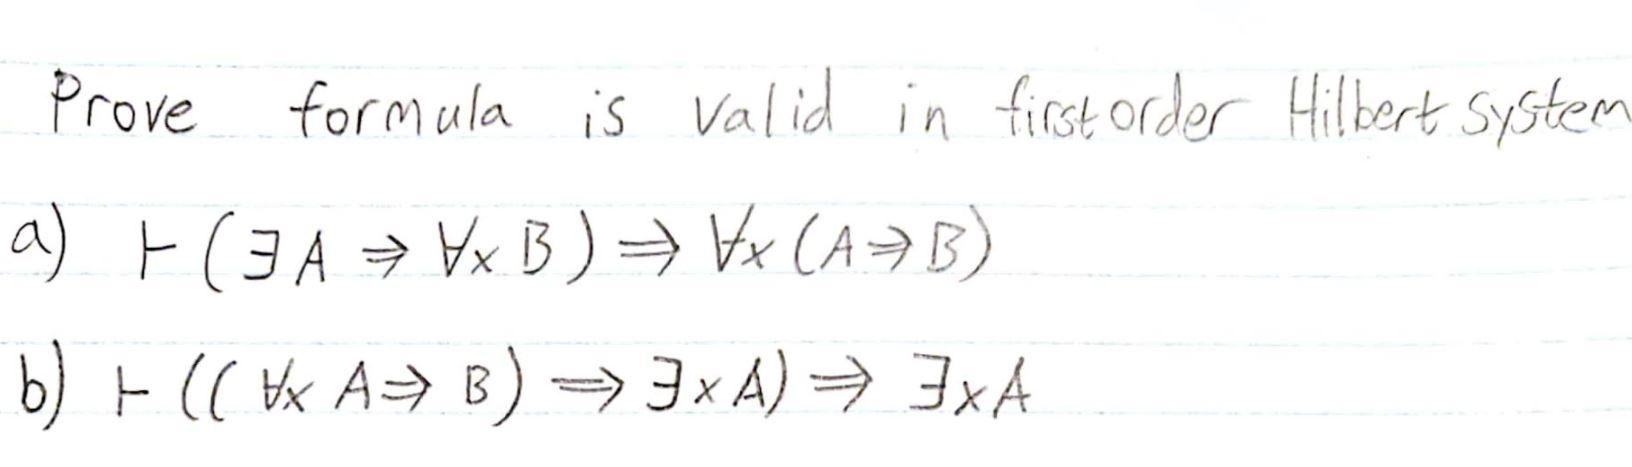 Prove formula is valid in first order Hilbert System
a) ⊢ (∃A ⇒ ∀x B) ⇒ ∀x (A ⇒ B)
b) ⊢ ((∀x A ⇒ B) ⇒ ∃x A) ⇒ ∃x A